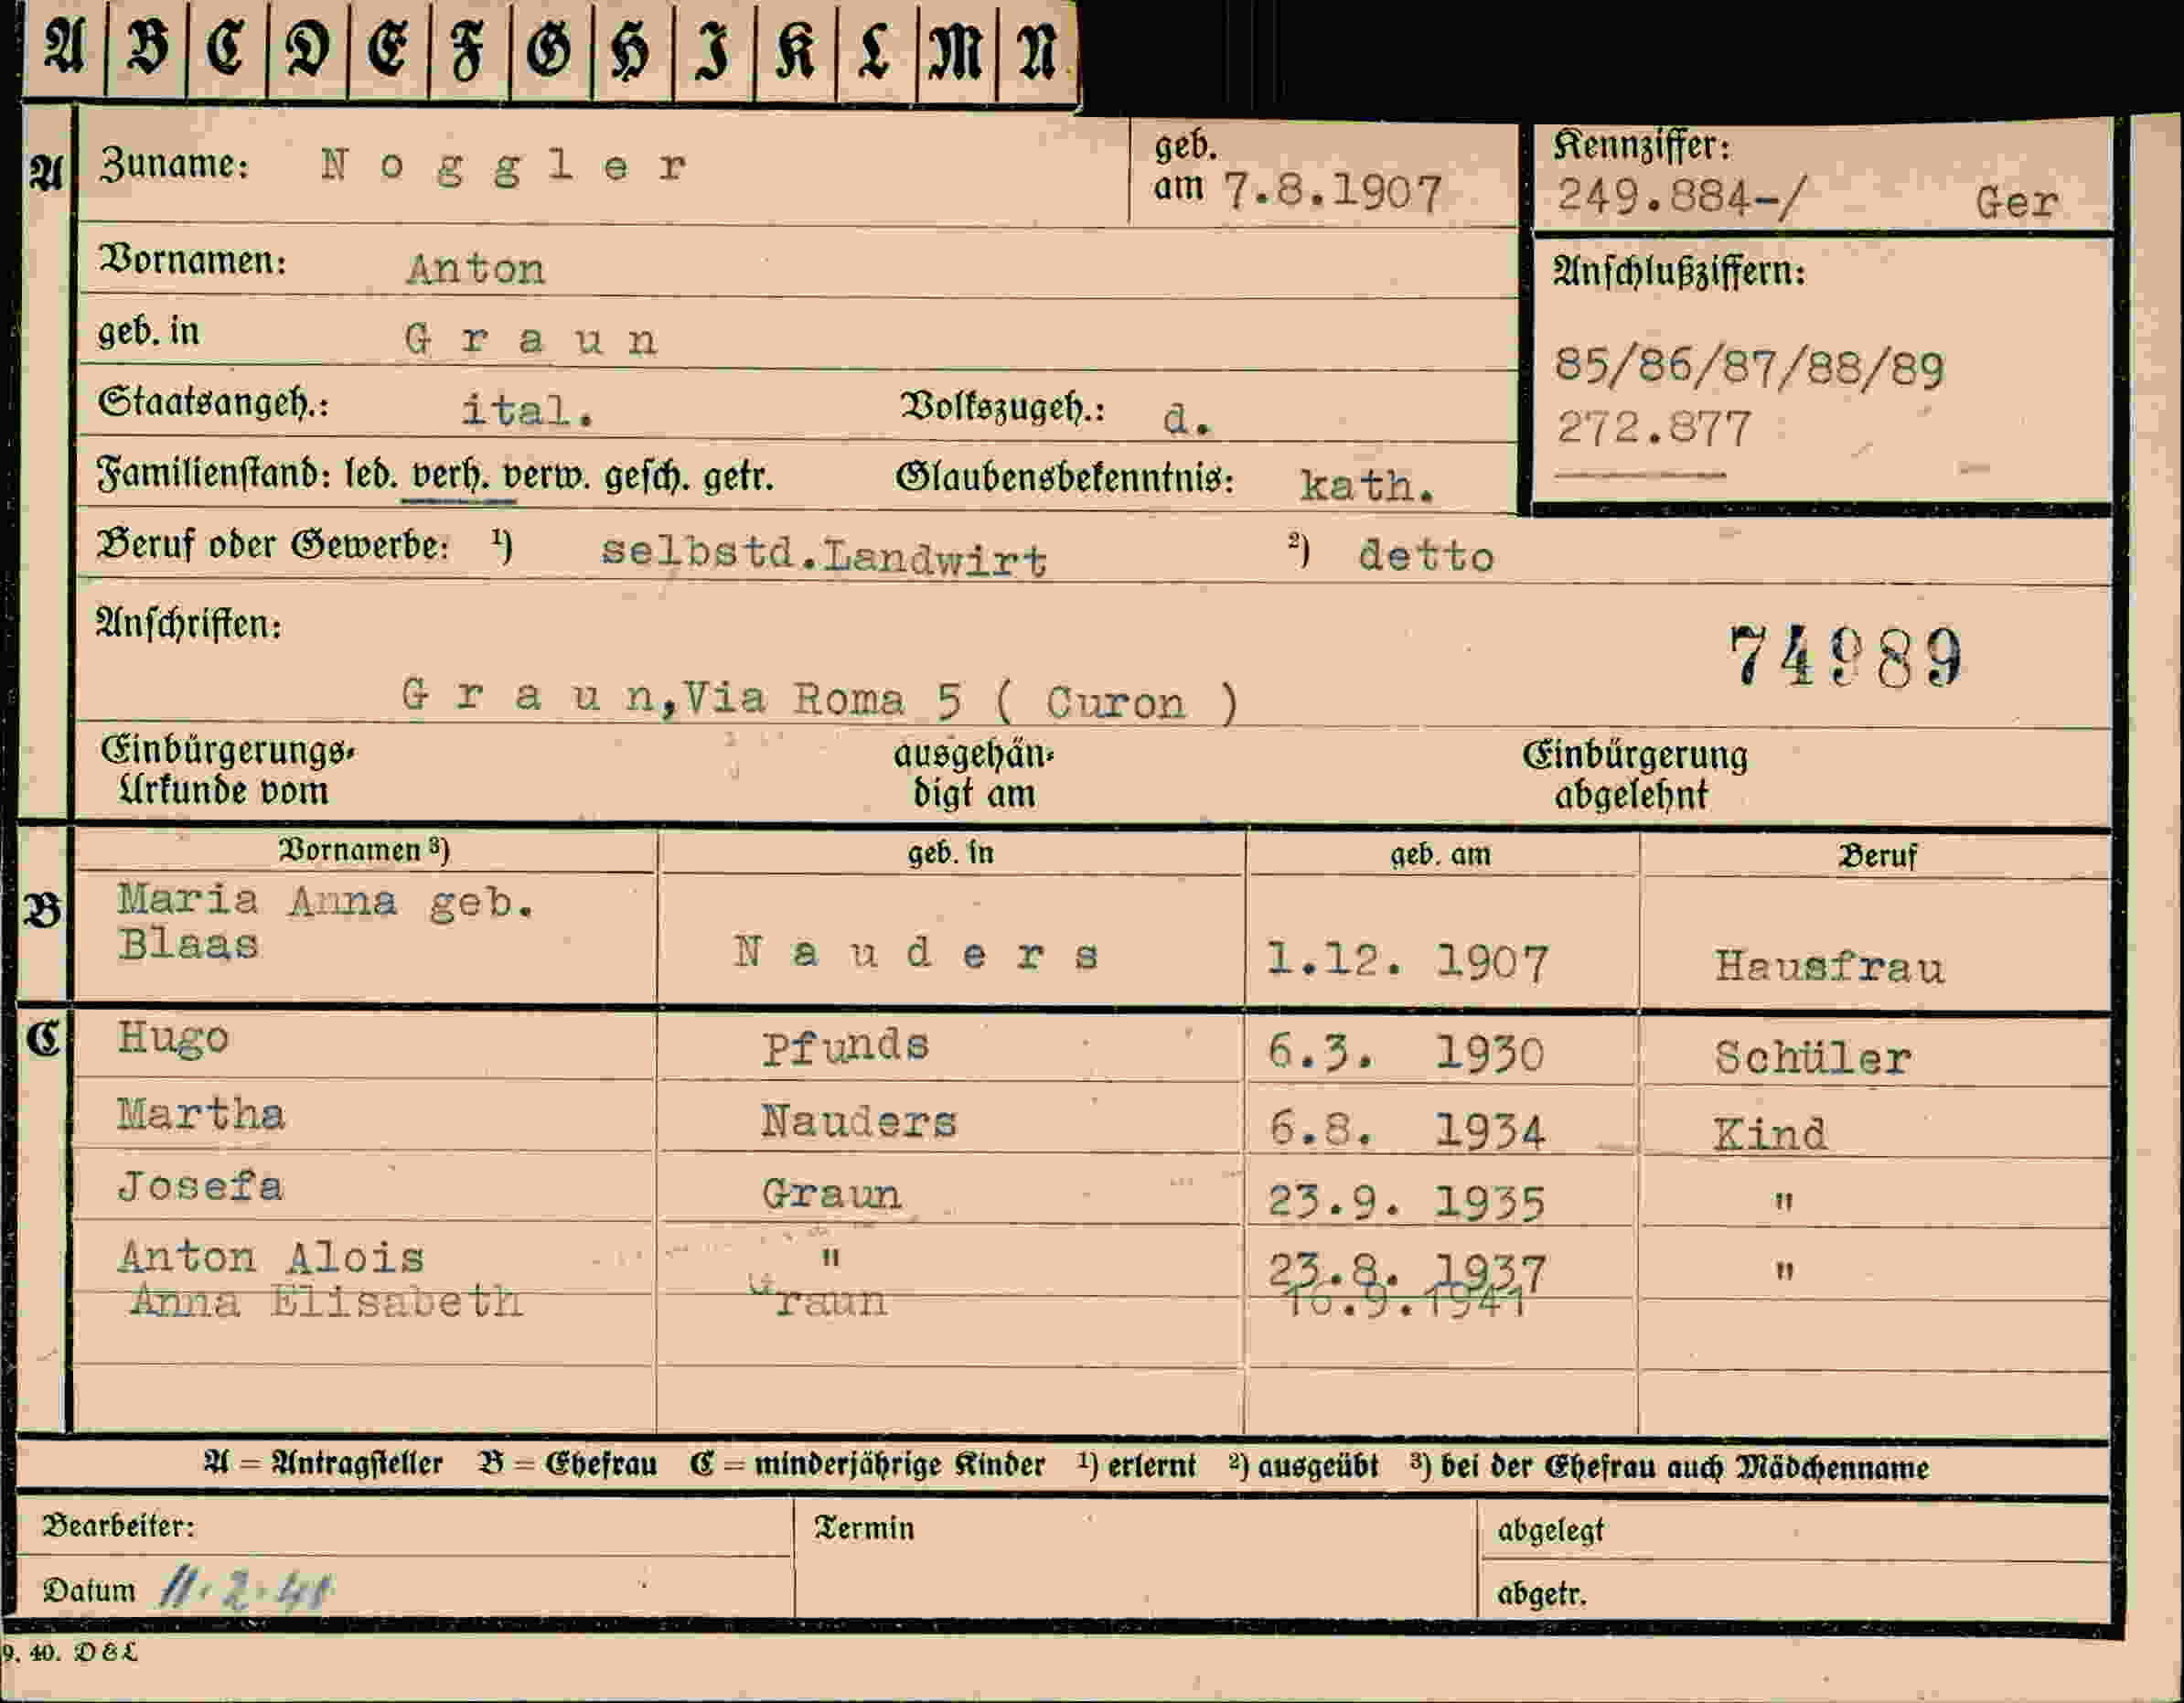 A B C D E F G H I K L M N
A Zuname: Noggler geb. am 7.8.1907 Kennziffer: 249.884-/ Ger
Vornamen: Anton Anschlußziffern:
geb. in Graun 85/86/87/88/89
Staatsangeh.: ital. Volkszugeh.: d. 272.877
Familienstand: led. verh. verw. gesch. getr. Glaubensbekenntnis: kath.
Beruf oder Gewerbe: ¹) selbstd.Landwirt ²) detto
Anschriften: 74989
Graun,Via Roma 5 ( Curon )
Einbürgerungs- ausgehän- Einbürgerung
Urkunde vom digt am abgelehnt
Vornamen ³) geb. in geb. am Beruf
B Maria Anna geb.
Blaas Nauders 1.12. 1907 Hausfrau
C Hugo Pfunds 6.3. 1930 Schüler
Martha Nauders 6.8. 1934 Kind
Josefa Graun 23.9. 1935 "
Anton Alois " 23.8. 1937 "
Anna Elisabeth Graun 16.9.1941
A = Antragsteller B = Ehefrau C = minderjährige Kinder ¹) erlernt ²) ausgeübt ³) bei der Ehefrau auch Mädchenname
Bearbeiter: Termin abgelegt
Datum 11.2.41 abgetr.
9. 40. D&L